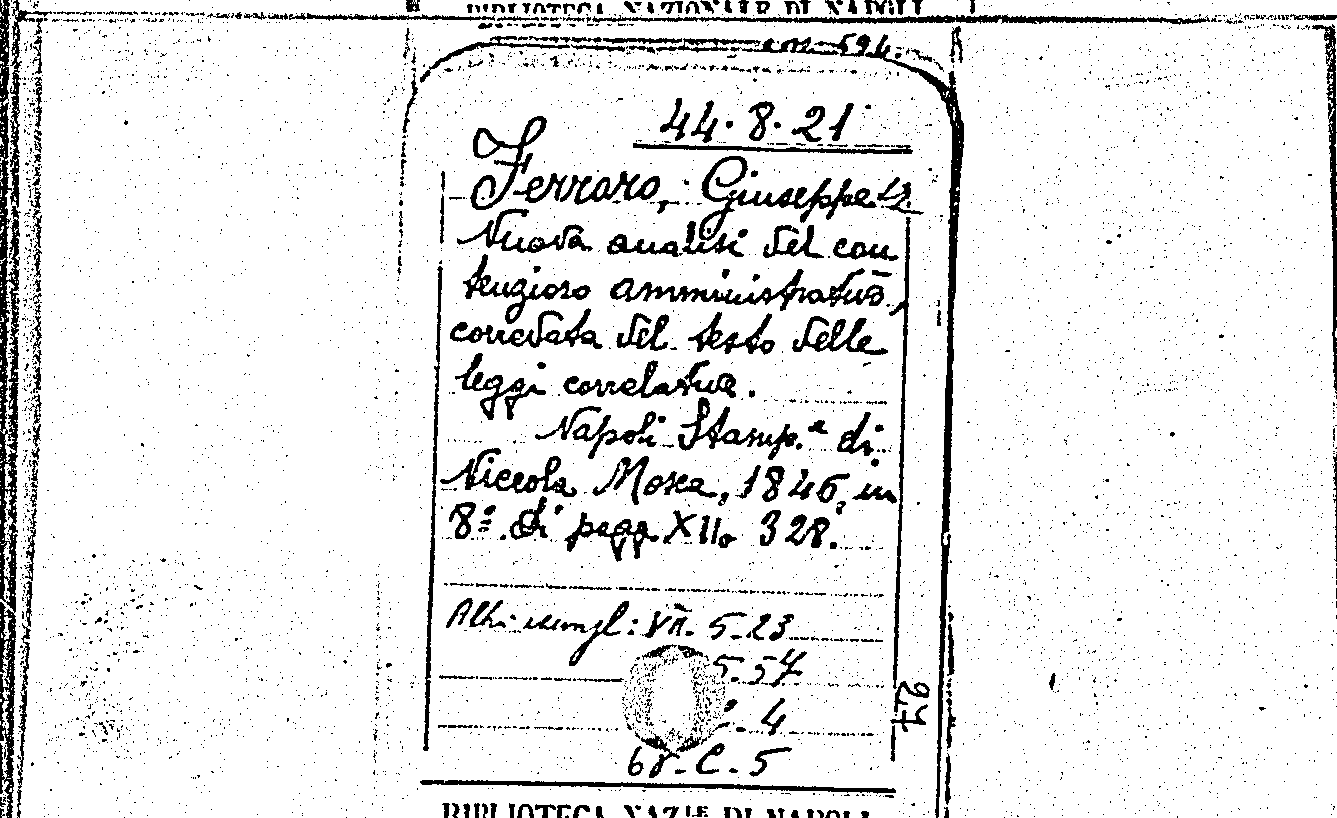 BIBLIOTECA NAZIONALE DI NAPOLI
594.
44.8.21
Ferraro, Giuseppe
Nuova analisi del con
tenzioso amministrativo,
corredata del testo delle
leggi correlative.
Napoli Stamp.a di
Niccola Mosca, 1846, in
8º di pagg. XII, 328.
Altri esempl: VII. 5-23
5.57
. 4
C. 5
BIBLIOTECA NAZ.LE DI NAPOLI